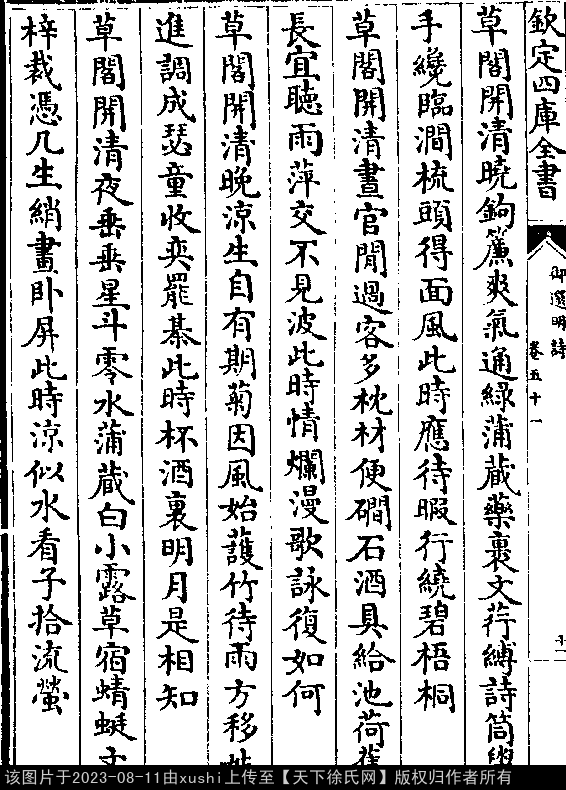 欽定四庫全書
御選明詩
卷五十一
草閣開清曉鉤簾爽氣通綠蒲蔵藥裹文荇縛詩筒
手纔臨澗梳頭得面風此時應待暇行繞碧梧桐
草閣開清晝官閒過客多枕材便磵石酒具給池荷
長宜聽雨萍交不見波此時情爛漫歌詠復如何
草閣開清晚涼生自有期菊因風始護竹待雨方移
進調成瑟童收奕罷棊此時杯酒裏明月是相知
草閣開清夜垂垂星斗零水蒲蔵白小露草宿蜻蜓
梓裁憑几生綃畫卧屏此時涼似水看子拾流螢
该图片于2023-08-11由xushi上传至【天下徐氏网】版权归作者所有